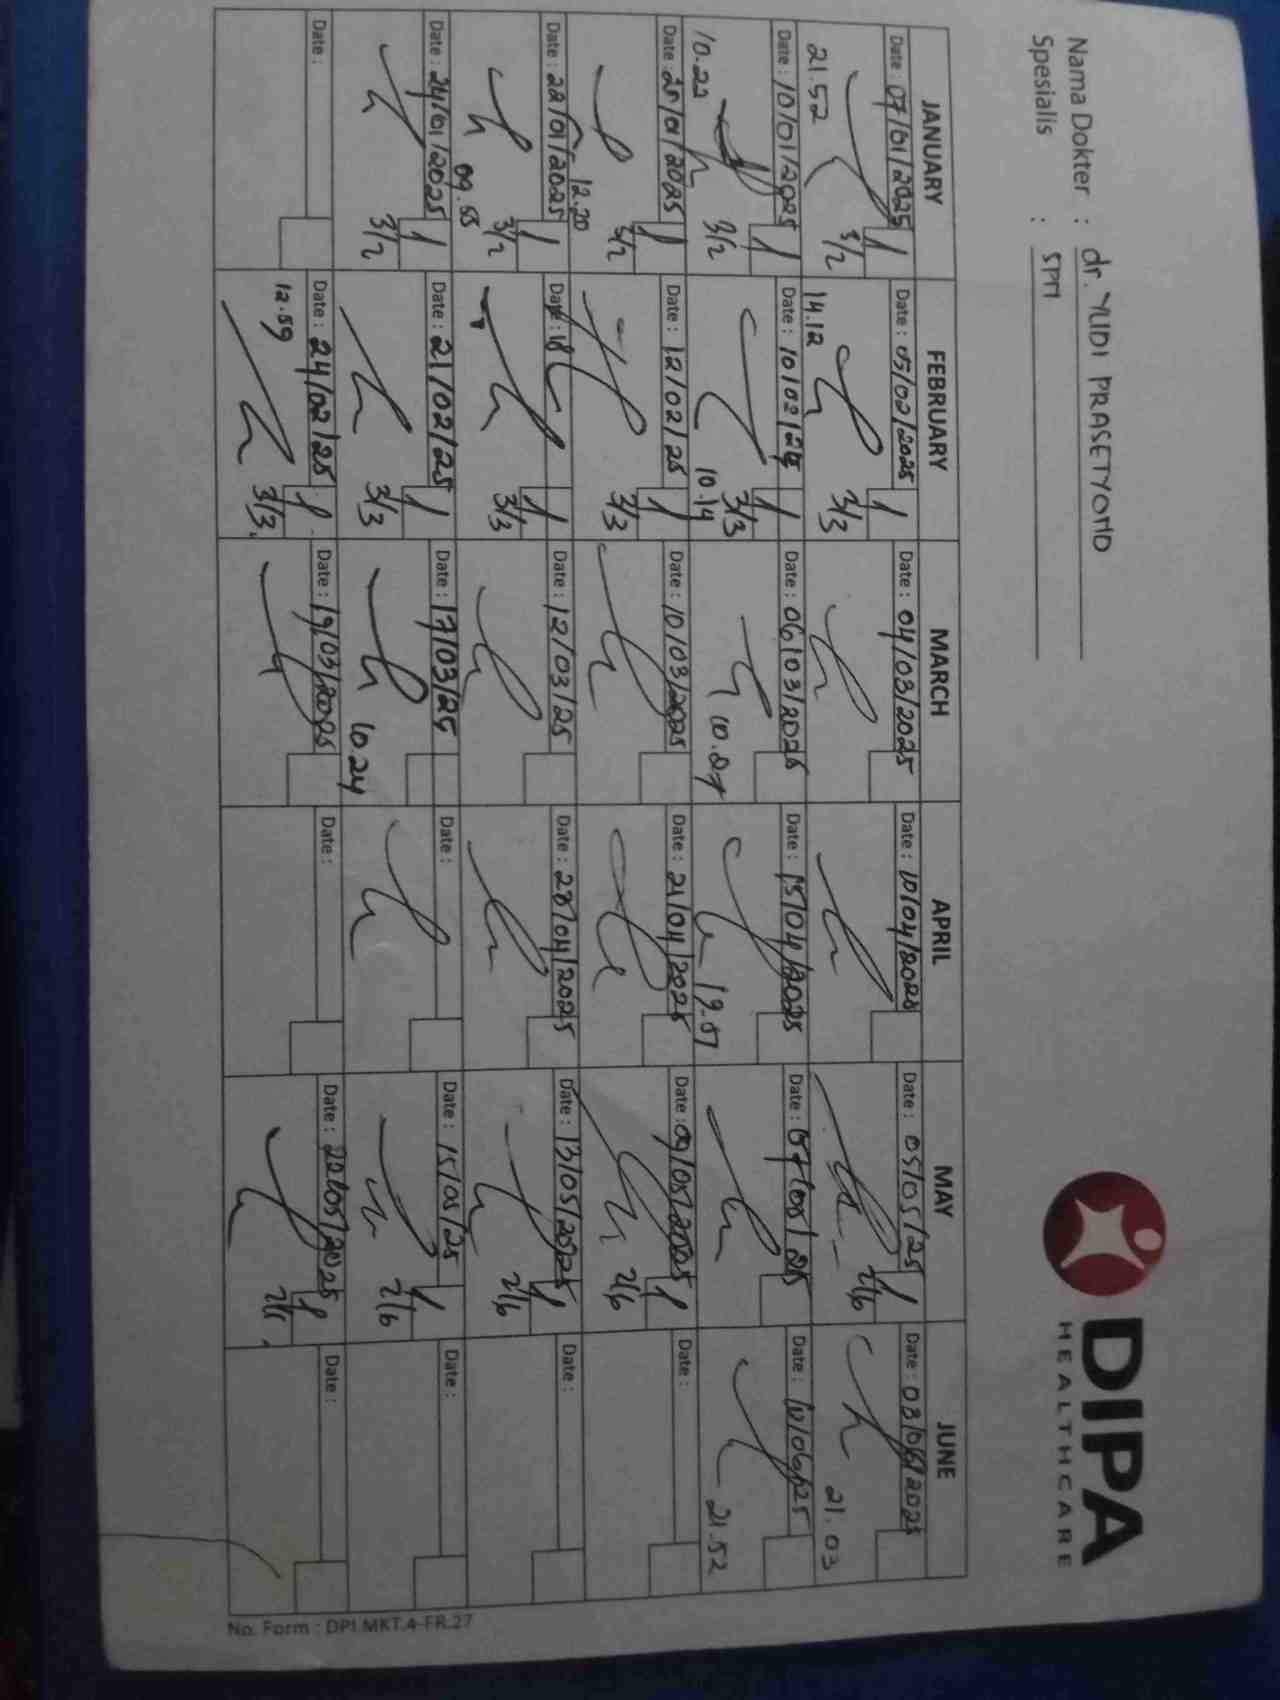 DIPA
HEALTHCARE
Nama Dokter : dr. YUDI PRASETYOMO
Spesialis : SPM
JANUARY FEBRUARY MARCH APRIL MAY JUNE
Date : 07/01/2025 Date : 05/02/2025 Date : 04/03/2025 Date : 10/04/2025 Date : 05/05/25 Date : 03/06/2025
21.52 3/2 14.12 3/3 2/6 21.03
Date : 10/01/2025 Date : 10/02/25 Date : 06/03/2025 Date : 15/04/2025 Date : 07/05/25 Date : 10/06/25
10.22 3/2 10.14 3/3 10.27 19.57 21.52
Date : 20/01/2025 Date : 12/02/25 Date : 10/03/2025 Date : 21/04/2025 Date : 09/05/2025 Date :
12.20 3/2 3/3 2/6
Date : 22/01/2025 Date : 18 Date : 12/03/25 Date : 28/04/2025 Date : 13/05/2025 Date :
09.55 3/2 3/3 2/6
Date : 24/01/2025 Date : 21/02/25 Date : 17/03/25 Date : Date : 15/05/25 Date :
3/2 3/3 10.24 2/6
Date : Date : 24/02/25 Date : 19/03/2025 Date : Date : 22/05/2025 Date :
12.59 3/3
No. Form : DPI.MKT.4-FR.27